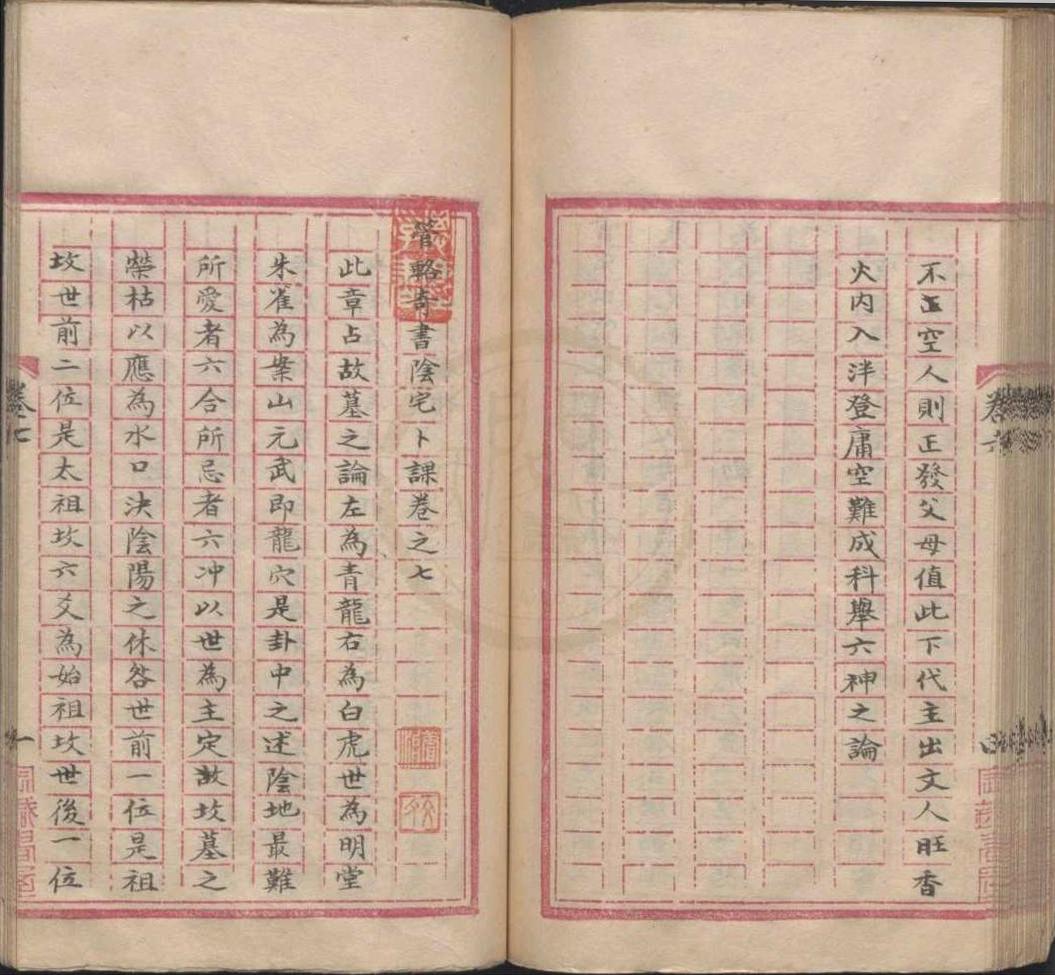 不正空人則正發父母值此下代主出文人旺香
火內入泮登庸空難成科舉六神之論
卷六
四
管輅奇書陰宅卜課卷之七
此章占故墓之論左為青龍右為白虎世為明堂
朱雀為案山元武即龍穴是卦中之述陰地最難
所愛者六合所忌者六冲以世為主定故坟墓之
榮枯以應為水口決陰陽之休咎世前一位是祖
坟世前二位是太祖坟六爻為始祖坟世後一位
卷七
一